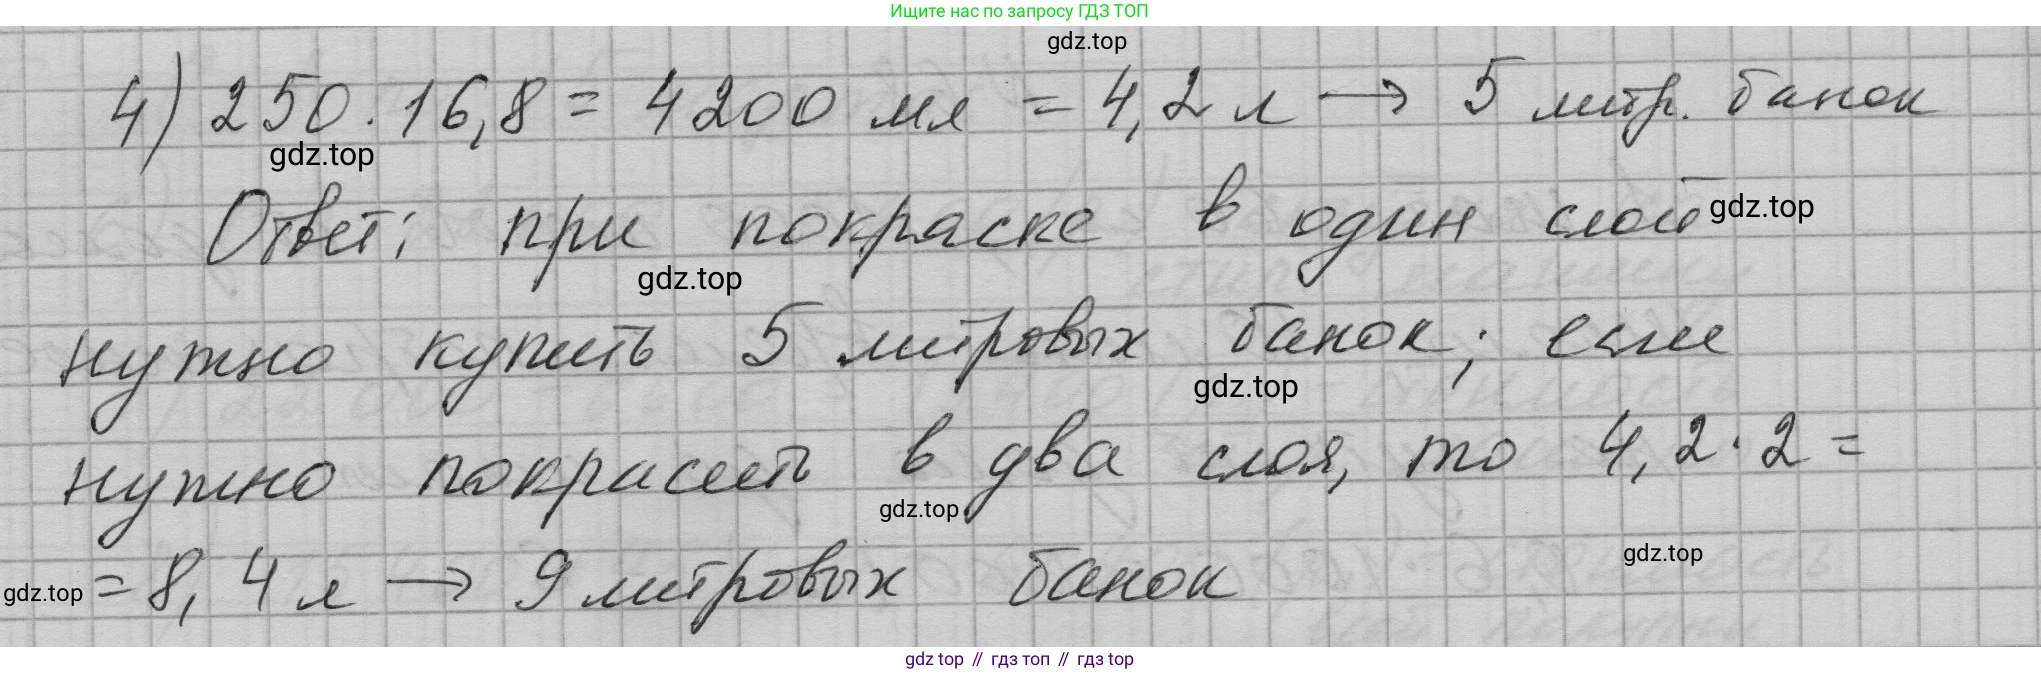 Ищите нас по запросу ГДЗ ТОП
gdz.top
4) 250 · 16,8 = 4200 мл = 4,2 л → 5 литр. банок
gdz.top
Ответ: при покраске в один слой
gdz.top
gdz.top
нужно купить 5 литровых банок; если
gdz.top
нужно покрасить в два слоя, то 4,2 · 2 =
gdz.top
gdz.top
gdz.top
= 8,4 л → 9 литровых банок
gdz top // гдз топ // гдз top